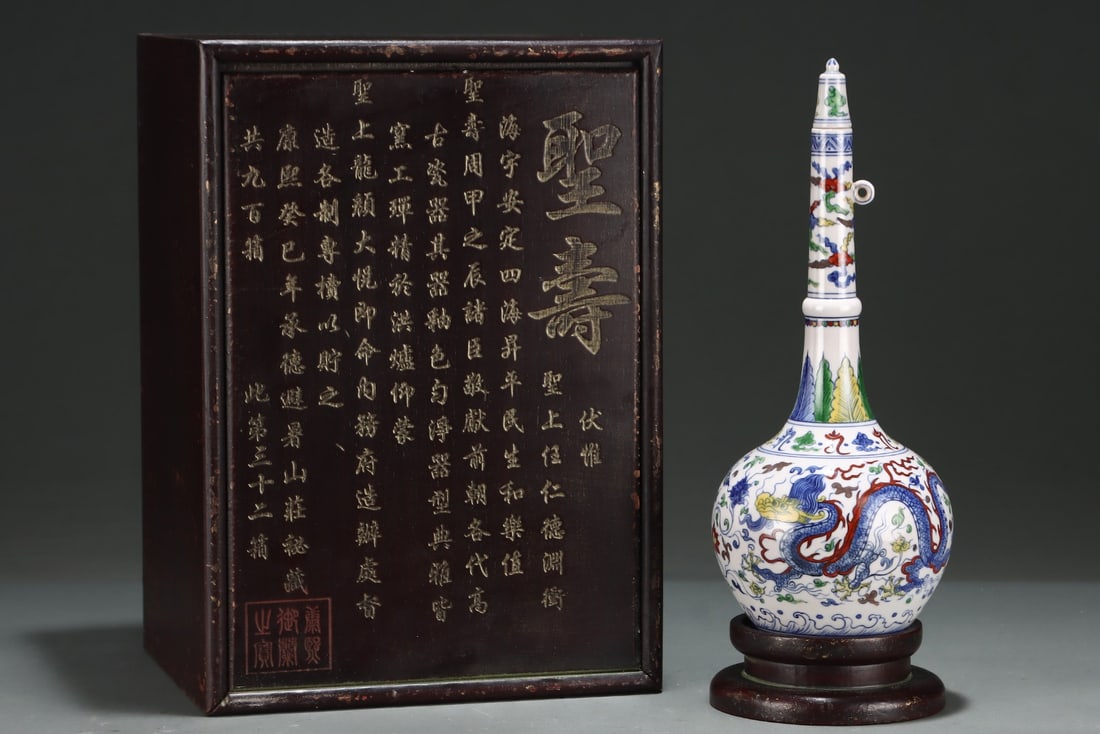 聖壽
伏惟
聖上任仁德淵衝
海宇安定四海昇平民生和樂值
聖壽周甲之辰諸臣敬獻前朝各代高
古瓷器其器釉色勻淨器型典雅皆
窯工殫精於洪爐仰蒙
聖上龍顏大悅即命內務府造辦處督
造各制專櫝以貯之
康熙癸巳年承德避暑山莊秘藏
共九百箱 此第三十二箱
康熙御覽之寶